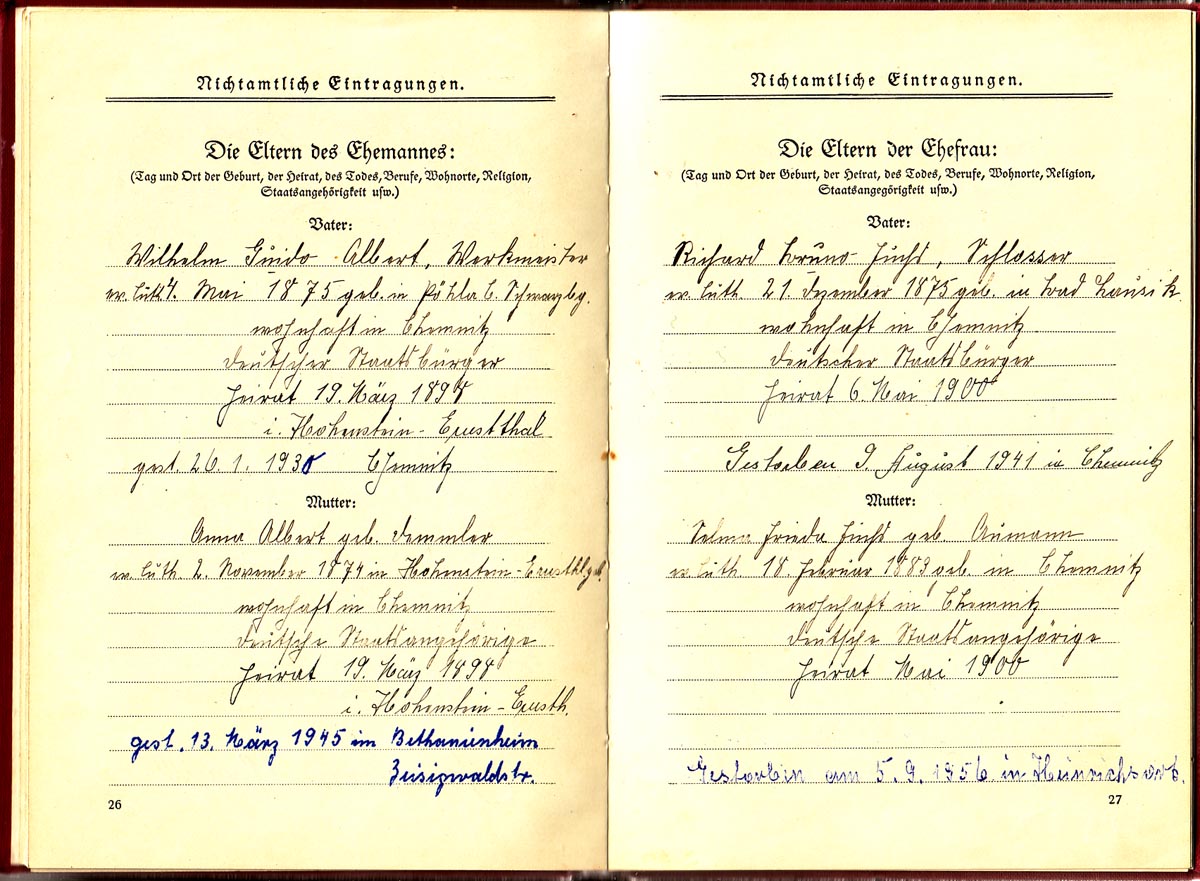 Nichtamtliche Eintragungen.
Die Eltern des Ehemannes:
(Tag und Ort der Geburt, der Heirat, des Todes, Berufe, Wohnorte, Religion,
Staatsangehörigkeit usw.)
Vater:
Wilhelm Guido Albert, Werkmeister
ev. luth. 4. Mai 1875 geb. in Pöhla b. Schwarzbg.
wohnhaft in Chemnitz
deutscher Staatsbürger
Heirat 19. März 1898
i. Hohenstein-Ernstthal
gest. 26. 1. 1938 Chemnitz
Mutter:
Anna Albert geb. Demmler
ev. luth. 2. November 1874 in Hohenstein-Ernstthl. geb.
wohnhaft in Chemnitz
deutsche Staatsangehörige
Heirat 19. März 1898
i. Hohenstein-Ernstth.
gest. 13. März 1945 im Bethanienheim
Zeisigwaldstr.
26
Nichtamtliche Eintragungen.
Die Eltern der Ehefrau:
(Tag und Ort der Geburt, der Heirat, des Todes, Berufe, Wohnorte, Religion,
Staatsangegörigkeit usw.)
Vater:
Richard Bruno Fuchs, Schlosser
ev. luth. 21. Dezember 1875 geb. in Bad Lausik
wohnhaft in Chemnitz
deutscher Staatsbürger
Heirat 6. Mai 1900
Gestorben 9. August 1941 in Chemnitz
Mutter:
Selma Frieda Fuchs geb. Aumann
ev. luth. 18. Februar 1883 geb. in Chemnitz
wohnhaft in Chemnitz
deutsche Staatsangehörige
Heirat Mai 1900
Gestorben am 5. 9. 1956 in Heinrichsort.
27